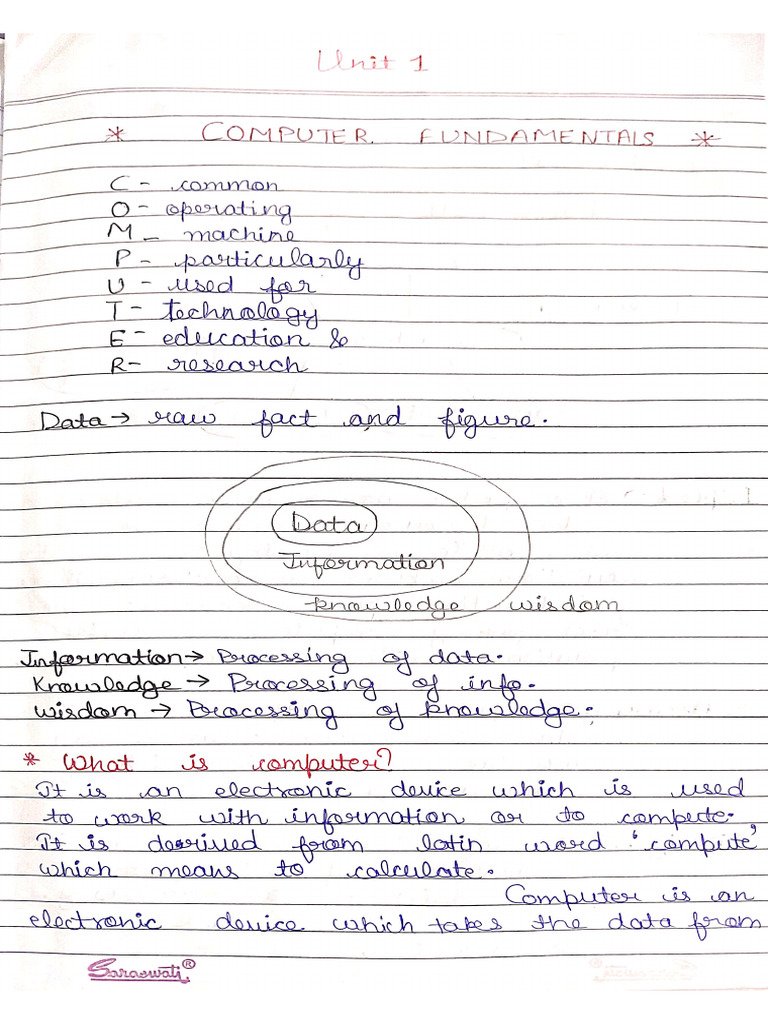 Unit 1
* COMPUTER. FUNDAMENTALS *
C - common
O - operating
M - machine
P - particularly
U - used for
T - technology
E - education &
R - research
Data → raw fact and figure.
Data
Information
knowledge wisdom
Information → Processing of data.
Knowledge → Processing of info.
wisdom → Processing of knowledge.
* What is computer?
It is an electronic device which is used
to work with information or to compute.
It is derived from latin word 'compute'
which means to calculate.
Computer is an
electronic device which takes the data from
Saraswati®